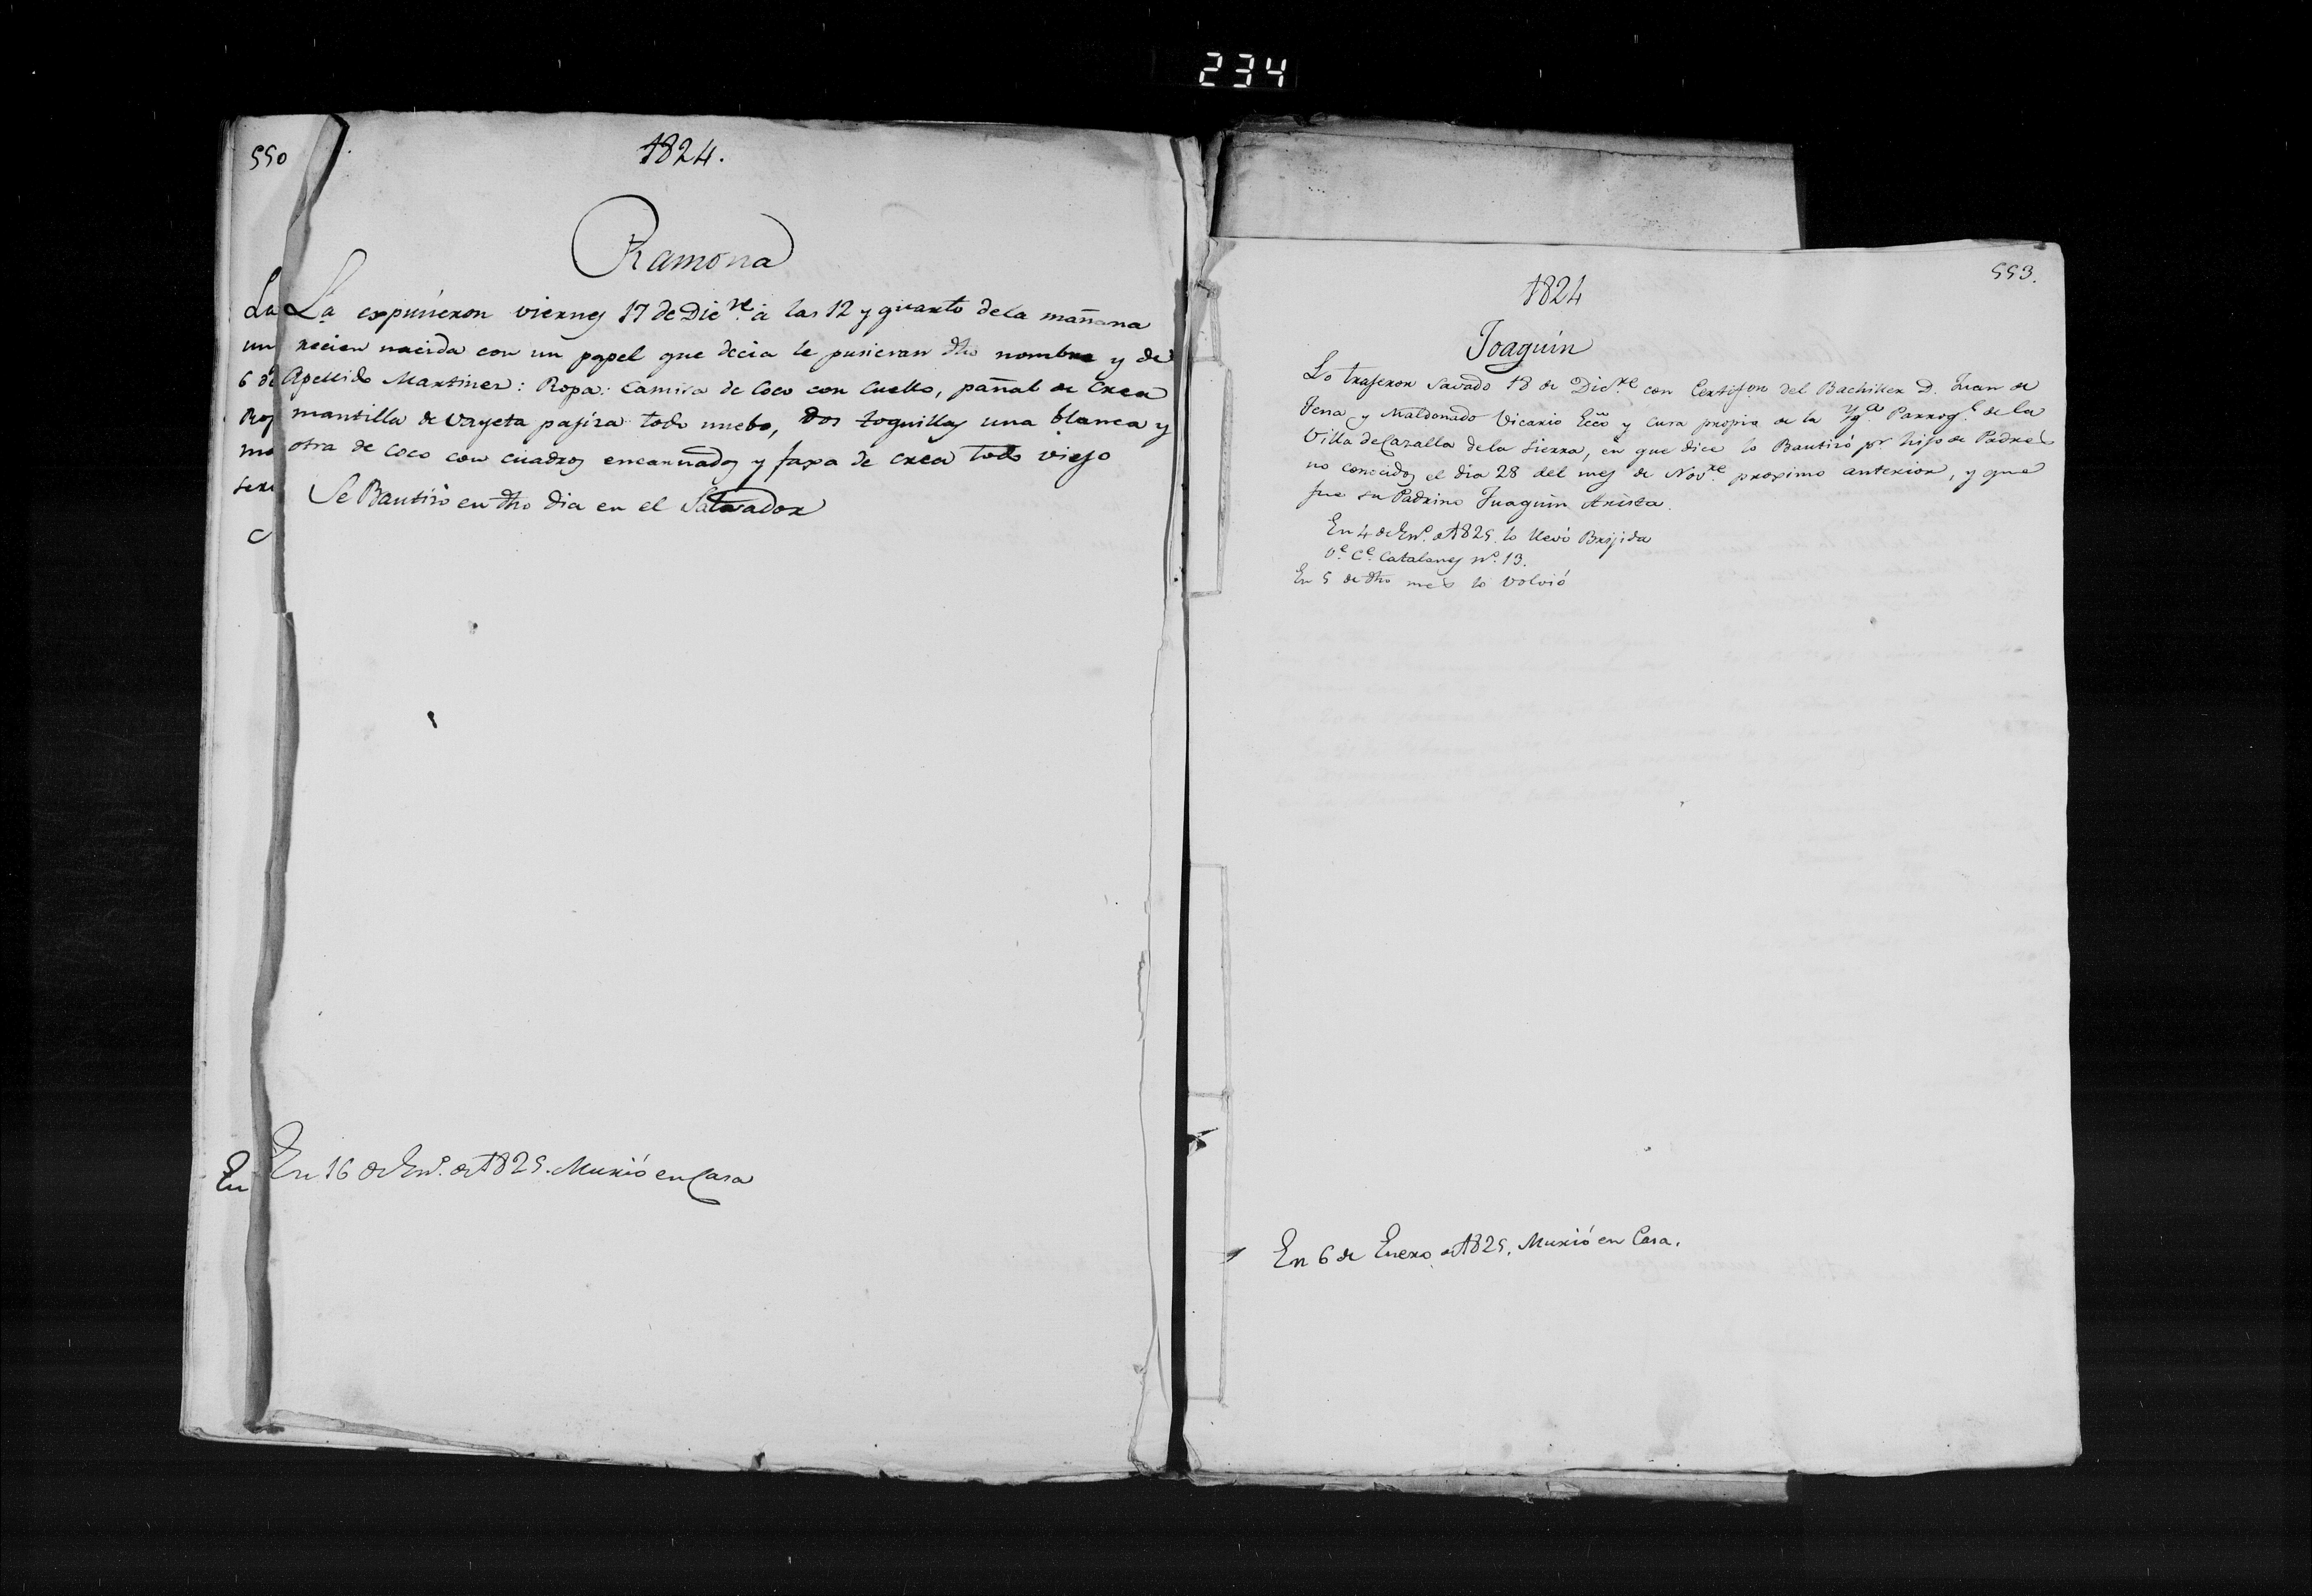 234
550
1824.
Ramona
La
un
6 de
Rop
ma
La expusieron viernes 17 de Dic.re a las 12 y quarto dela mañana
recien nacida con un papel que decia le pusieran dho nombre y de
Apellido Martinez: Ropa: Camisa de Coco con Cuello, pañal de Crea
mantilla de Vayeta pajiza todo nuebo, dos toquillas una blanca y
otra de Coco con cuadros encarnados y faxa de crea todo viejo
Se Bautizó en dho dia en el Salvador
En
En 16 de En.o de 1825. Murió en Casa
553.
1824
Joaquin
Lo trageron Savado 18 de Dic.re con Certif.on del Bachiller D. Juan de
Tena y Maldonado Vicario Ecco y Cura propio de la Yg.a Parroq.l de la
Villa de Cazalla dela Sierra, en que dice lo Bautizó p.r hijo de Padres
no conocidos el dia 28 del mes de Nov.re proximo anterior, y que
fue su Padrino Juaquin Arista.
En 4 de En.o de 1825. lo llevó Brijida
V.e C.e Catalanes n.o 13.
En 5 de dho mes lo volvió
En 6 de Enero de 1825. Murió en Casa.